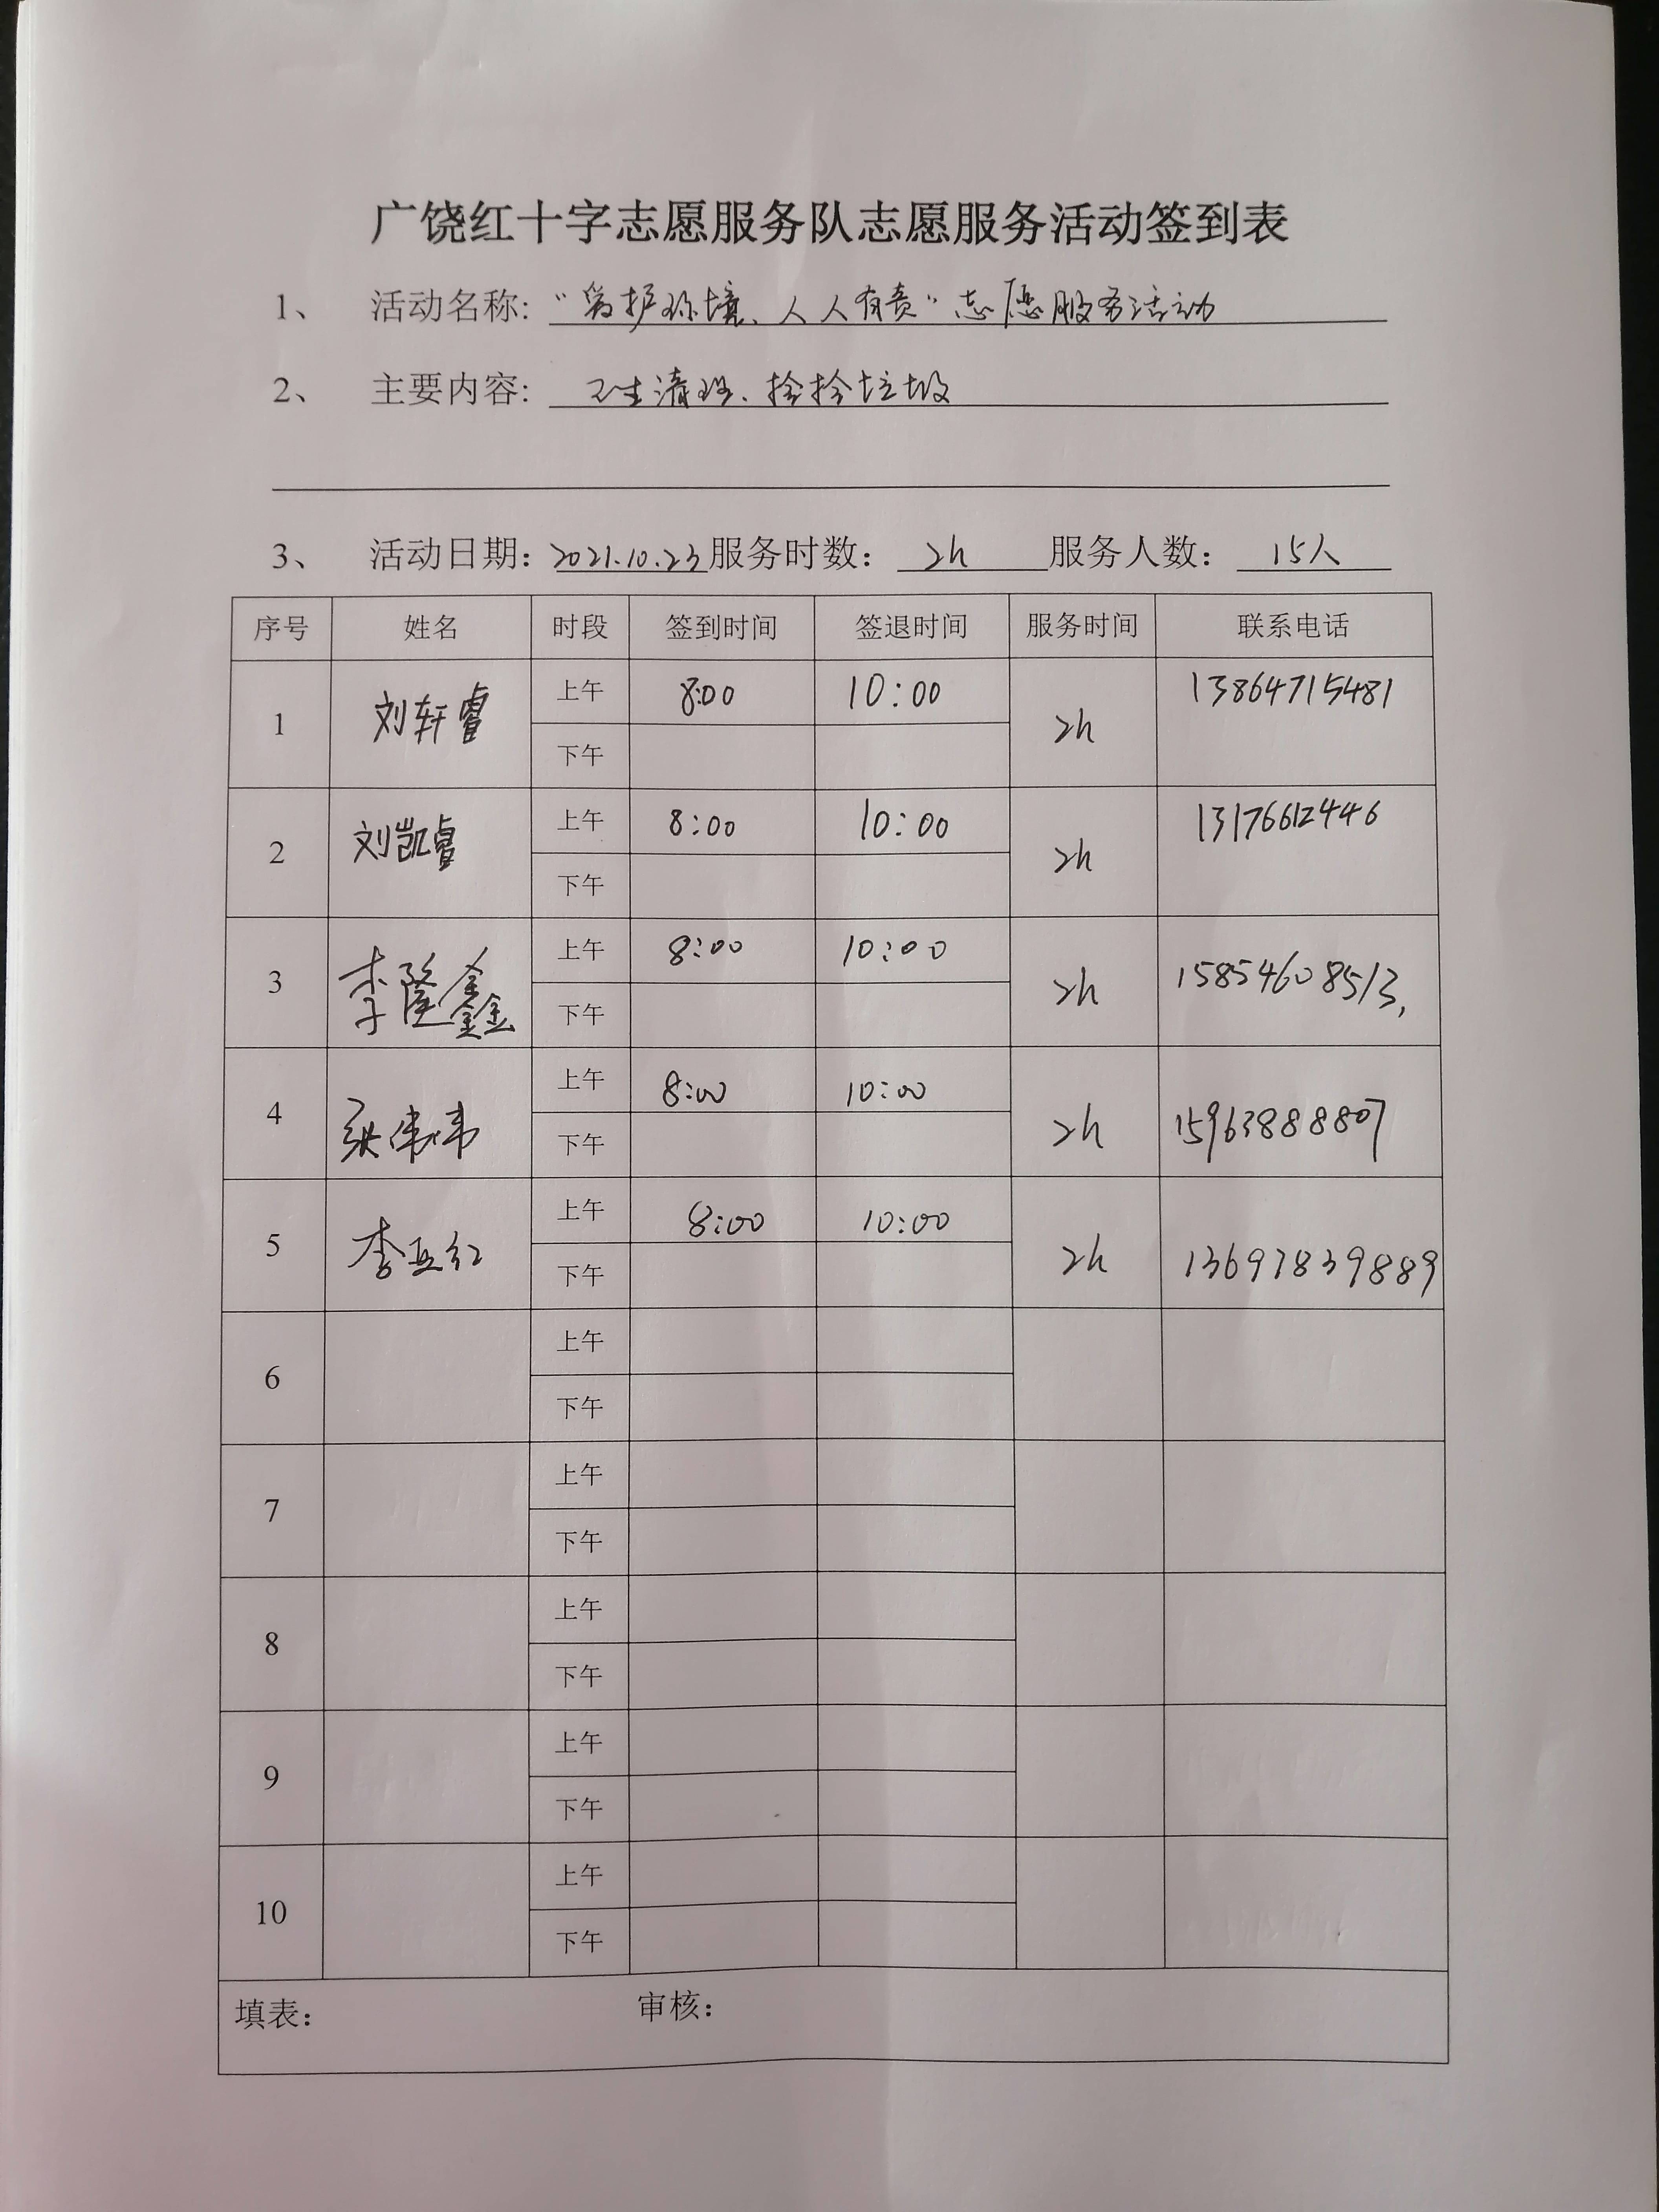 广饶红十字志愿服务队志愿服务活动签到表
1、 活动名称: “爱护环境、人人有责”志愿服务活动
2、 主要内容: 卫生清理、捡捡垃圾
3、 活动日期: 2021.10.23 服务时数: 2h 服务人数: 15人
序号 姓名 时段 签到时间 签退时间 服务时间 联系电话
1 刘轩睿 上午 8:00 10:00 2h 13864715481
下午
2 刘凯睿 上午 8:00 10:00 2h 13176612446
下午
3 李隆鑫 上午 8:00 10:00 2h 15854608513,
下午
4 张伟伟 上午 8:00 10:00 2h 15963888807
下午
5 李亚红 上午 8:00 10:00 2h 13697839889
下午
6 上午
下午
7 上午
下午
8 上午
下午
9 上午
下午
10 上午
下午
填表: 审核: